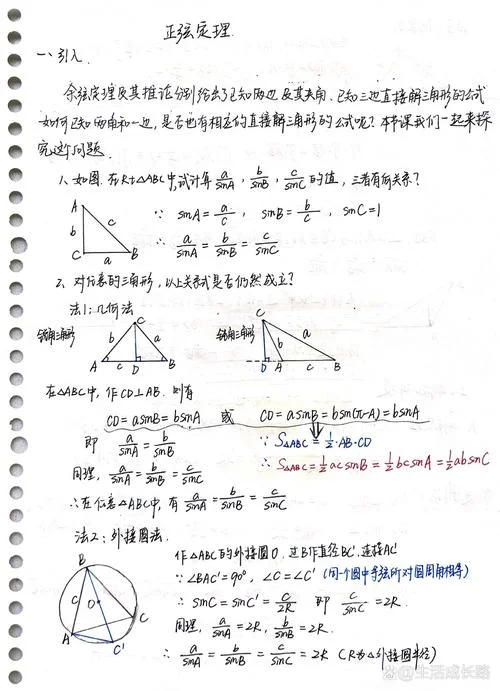 正弦定理
一、引入
余弦定理及其推论分别给出了已知两边及其夹角、已知三边直接解三角形的公式
如何已知两角和一边,是否也有相应的直接解三角形的公式呢?本节课我们一起来探
究这个问题.
1、如图,在Rt△ABC中,试计算 a/sinA, b/sinB, c/sinC 的值,三者有何关系?
A
b c
C a B
∵ sinA = a/c, sinB = b/c, sinC = 1
∴ a/sinA = b/sinB = c/sinC
2、对任意的三角形,以上关系式是否仍然成立?
法1:几何法
锐角三角形
C
b a
A D c B
钝角三角形
C
b a
D A c B
在△ABC中,作CD⊥AB.则有
CD = asinB = bsinA 或 CD = asinB = bsin(π-A) = bsinA
即 a/sinA = b/sinB
∵ S△ABC = 1/2·AB·CD
同理, a/sinA = b/sinB = c/sinC
∴ S△ABC = 1/2acsinB = 1/2bcsinA = 1/2absinC
∴在任意△ABC中,有 a/sinA = b/sinB = c/sinC
法2:外接圆法.
B
c O
A C
C'
作△ABC的外接圆O,过B作直径BC',连接AC'
∵ ∠BAC' = 90°, ∠C = ∠C' (同一个圆中等弦所对圆周角相等)
∴ sinC = sinC' = c/2R 即 c/sinC = 2R.
同理, a/sinA = 2R, b/sinB = 2R.
∴ a/sinA = b/sinB = c/sinC = 2R (R为△外接圆半径)
@生活成长路